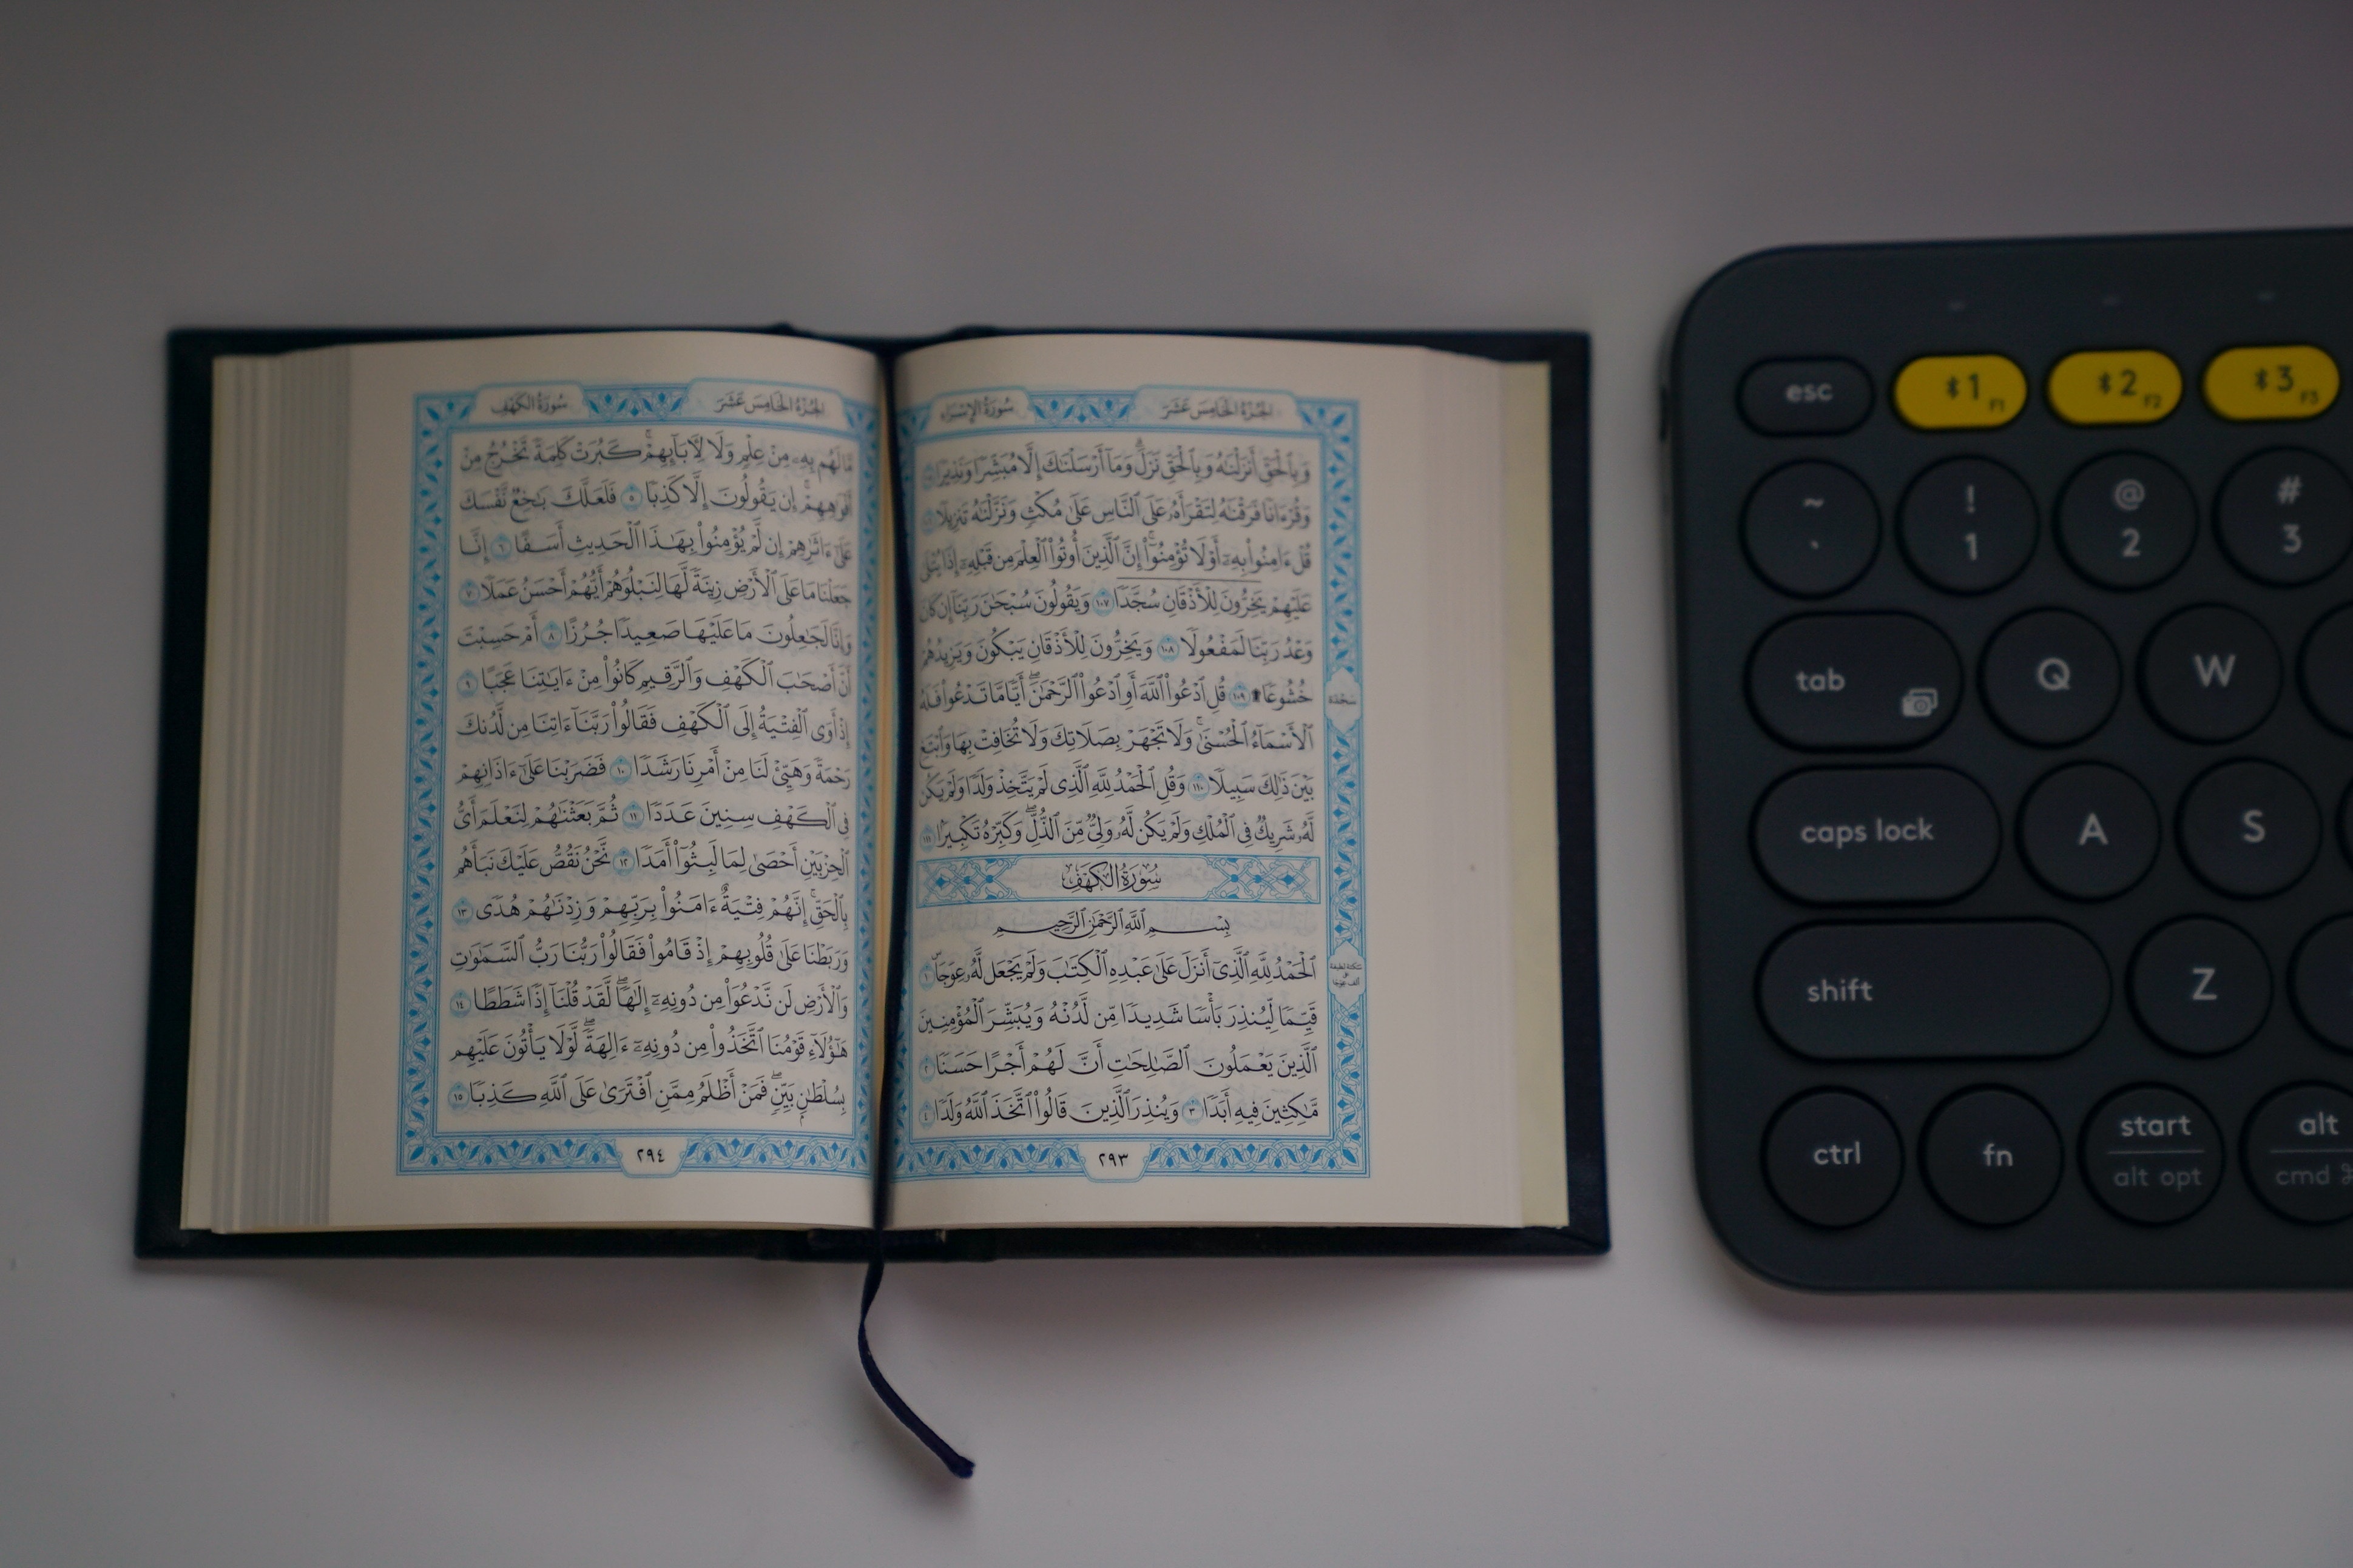 سُورَةُ الإِسْرَاءِ
الجُزْءُ الخَامِسَ عَشَرَ
وَبِٱلْحَقِّ أَنزَلْنَٰهُ وَبِٱلْحَقِّ نَزَلَۗ وَمَآ أَرْسَلْنَٰكَ إِلَّا مُبَشِّرًا وَنَذِيرًا
وَقُرْءَانًا فَرَقْنَٰهُ لِتَقْرَأَهُۥ عَلَى ٱلنَّاسِ عَلَىٰ مُكْثٍ وَنَزَّلْنَٰهُ تَنزِيلًا
قُلْ ءَامِنُوا۟ بِهِۦٓ أَوْ لَا تُؤْمِنُوٓا۟ۚ إِنَّ ٱلَّذِينَ أُوتُوا۟ ٱلْعِلْمَ مِن قَبْلِهِۦٓ إِذَا يُتْلَىٰ
عَلَيْهِمْ يَخِرُّونَ لِلْأَذْقَانِ سُجَّدًا ١٠٧ وَيَقُولُونَ سُبْحَٰنَ رَبِّنَآ إِن كَانَ
وَعْدُ رَبِّنَا لَمَفْعُولًا ١٠٨ وَيَخِرُّونَ لِلْأَذْقَانِ يَبْكُونَ وَيَزِيدُهُمْ
خُشُوعًا ۩ ١٠٩ قُلِ ٱدْعُوا۟ ٱللَّهَ أَوِ ٱدْعُوا۟ ٱلرَّحْمَٰنَۖ أَيًّا مَّا تَدْعُوا۟ فَلَهُ
ٱلْأَسْمَآءُ ٱلْحُسْنَىٰۚ وَلَا تَجْهَرْ بِصَلَاتِكَ وَلَا تُخَافِتْ بِهَا وَٱبْتَغِ
بَيْنَ ذَٰلِكَ سَبِيلًا ١١٠ وَقُلِ ٱلْحَمْدُ لِلَّهِ ٱلَّذِى لَمْ يَتَّخِذْ وَلَدًا وَلَمْ يَكُن
لَّهُۥ شَرِيكٌ فِى ٱلْمُلْكِ وَلَمْ يَكُن لَّهُۥ وَلِىٌّ مِّنَ ٱلذُّلِّۖ وَكَبِّرْهُ تَكْبِيرًۢا ١١١
سُورَةُ الكَهْفِ
بِسْمِ ٱللَّهِ ٱلرَّحْمَٰنِ ٱلرَّحِيمِ
ٱلْحَمْدُ لِلَّهِ ٱلَّذِىٓ أَنزَلَ عَلَىٰ عَبْدِهِ ٱلْكِتَٰبَ وَلَمْ يَجْعَل لَّهُۥ عِوَجَاۜ ١
قَيِّمًا لِّيُنذِرَ بَأْسًا شَدِيدًا مِّن لَّدُنْهُ وَيُبَشِّرَ ٱلْمُؤْمِنِينَ
ٱلَّذِينَ يَعْمَلُونَ ٱلصَّٰلِحَٰتِ أَنَّ لَهُمْ أَجْرًا حَسَنًا ٢
مَّٰكِثِينَ فِيهِ أَبَدًا ٣ وَيُنذِرَ ٱلَّذِينَ قَالُوا۟ ٱتَّخَذَ ٱللَّهُ وَلَدًا ٤
سَجْدَة
٢٩٣
سُورَةُ الكَهْفِ
الجُزْءُ الخَامِسَ عَشَرَ
مَّا لَهُم بِهِۦ مِنْ عِلْمٍ وَلَا لِـَٔابَآئِهِمْۚ كَبُرَتْ كَلِمَةً تَخْرُجُ مِنْ
أَفْوَٰهِهِمْۚ إِن يَقُولُونَ إِلَّا كَذِبًا ٥ فَلَعَلَّكَ بَٰخِعٌ نَّفْسَكَ
عَلَىٰٓ ءَاثَٰرِهِمْ إِن لَّمْ يُؤْمِنُوا۟ بِهَٰذَا ٱلْحَدِيثِ أَسَفًا ٦ إِنَّا
جَعَلْنَا مَا عَلَى ٱلْأَرْضِ زِينَةً لَّهَا لِنَبْلُوَهُمْ أَيُّهُمْ أَحْسَنُ عَمَلًا ٧
وَإِنَّا لَجَٰعِلُونَ مَا عَلَيْهَا صَعِيدًا جُرُزًا ٨ أَمْ حَسِبْتَ
أَنَّ أَصْحَٰبَ ٱلْكَهْفِ وَٱلرَّقِيمِ كَانُوا۟ مِنْ ءَايَٰتِنَا عَجَبًا ٩
إِذْ أَوَى ٱلْفِتْيَةُ إِلَى ٱلْكَهْفِ فَقَالُوا۟ رَبَّنَآ ءَاتِنَا مِن لَّدُنكَ
رَحْمَةً وَهَيِّئْ لَنَا مِنْ أَمْرِنَا رَشَدًا ١٠ فَضَرَبْنَا عَلَىٰٓ ءَاذَانِهِمْ
فِى ٱلْكَهْفِ سِنِينَ عَدَدًا ١١ ثُمَّ بَعَثْنَٰهُمْ لِنَعْلَمَ أَىُّ
ٱلْحِزْبَيْنِ أَحْصَىٰ لِمَا لَبِثُوٓا۟ أَمَدًا ١٢ نَّحْنُ نَقُصُّ عَلَيْكَ نَبَأَهُم
بِٱلْحَقِّۚ إِنَّهُمْ فِتْيَةٌ ءَامَنُوا۟ بِرَبِّهِمْ وَزِدْنَٰهُمْ هُدًى ١٣
وَرَبَطْنَا عَلَىٰ قُلُوبِهِمْ إِذْ قَامُوا۟ فَقَالُوا۟ رَبُّنَا رَبُّ ٱلسَّمَٰوَٰتِ
وَٱلْأَرْضِ لَن نَّدْعُوَا۟ مِن دُونِهِۦٓ إِلَٰهًاۖ لَّقَدْ قُلْنَآ إِذًا شَطَطًا ١٤
هَٰٓؤُلَآءِ قَوْمُنَا ٱتَّخَذُوا۟ مِن دُونِهِۦٓ ءَالِهَةًۖ لَّوْلَا يَأْتُونَ عَلَيْهِم
بِسُلْطَٰنٍۭ بَيِّنٍۖ فَمَنْ أَظْلَمُ مِمَّنِ ٱفْتَرَىٰ عَلَى ٱللَّهِ كَذِبًا ١٥
٢٩٤
esc 1 F1 2 F2 3 F3
~ ! @ #
` 1 2 3
tab Q W
caps lock A S
shift Z
ctrl fn start alt
alt opt cmd ⌘